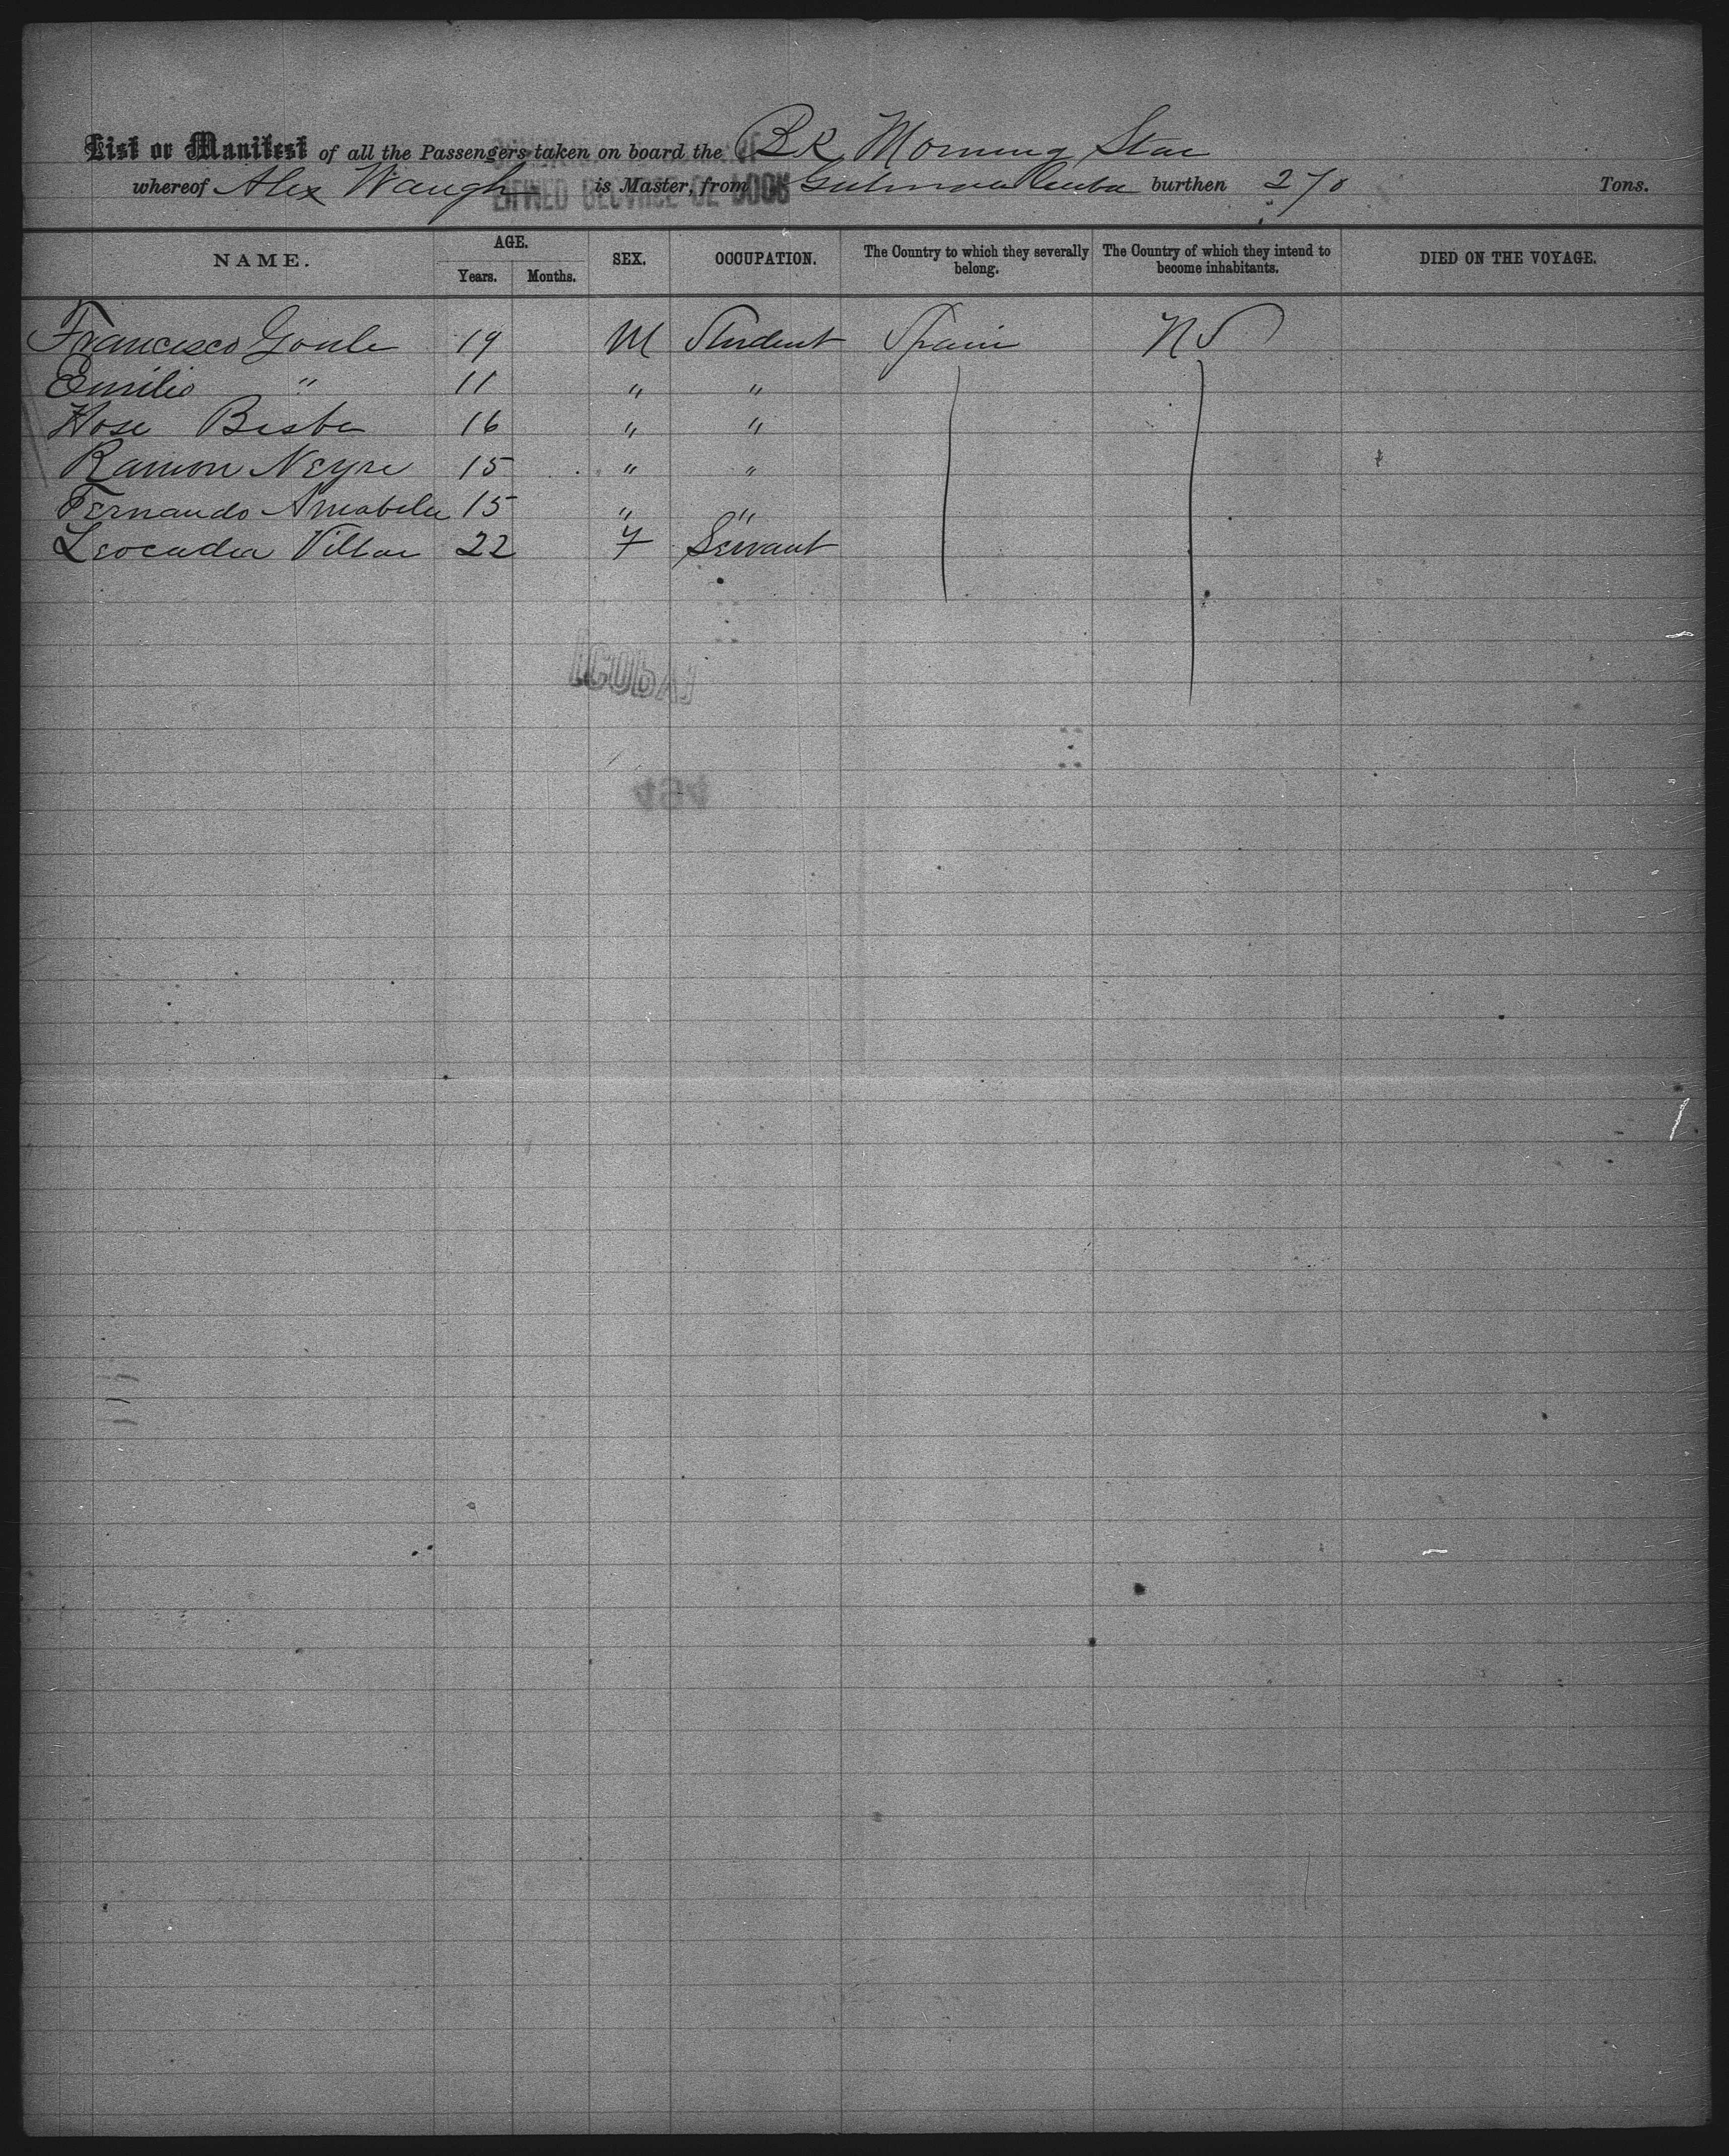 List or Manifest of all the Passengers taken on board the Bk Morning Star
whereof Alex Waugh is Master, from Cuba burthen 270 Tons.
NAME. AGE. SEX. OCCUPATION. The Country to which they severally belong. The Country of which they intend to become inhabitants. DIED ON THE VOYAGE.
Years. Months.
Francisco 19 M Student Spain
Emilio " 11 " "
Hose Besba 16 " "
Ramon Neyre 15 " "
Fernando 15 " "
Leocadia Villar 22 F Servant